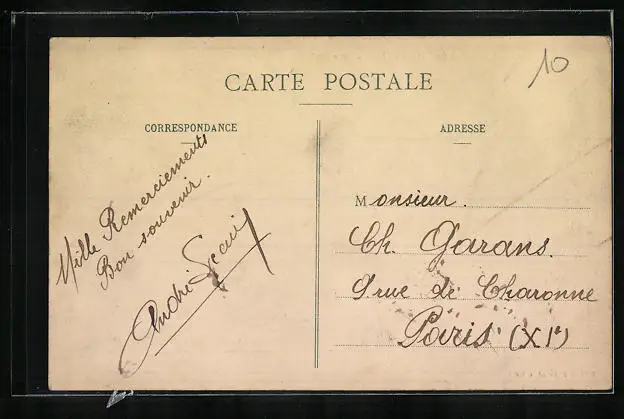 CARTE POSTALE
10
CORRESPONDANCE
Mille Remerciements
Bon souvenir.
André
ADRESSE
Monsieur.
Ch. Garans.
9 rue de Charonne
Paris (XIe)